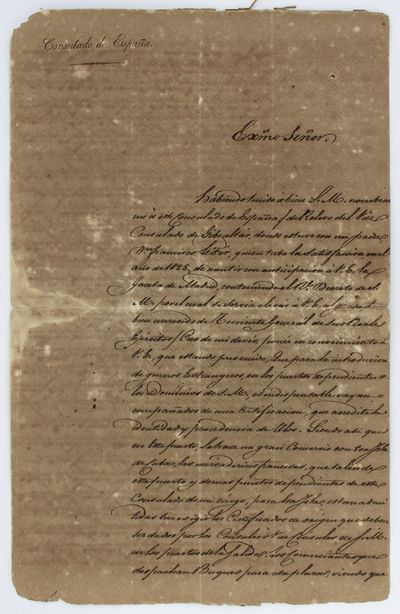 Consulado de España.
Exmo Señor.
Habiendo tenido á bien S. M. nombrar
me á este Consulado de España, del Vice
Consulado de Gibraltar, donde estuve con mi padre
Dn Francisco quien tubo la satisfaccion en el
año de 1825, de remitir con anticipacion á V. E. la
Gaceta de Madrid, conteniendo el Rl. Decreto de S.
M. por el cual se servia elevar á V. E. al
bien merecido de Teniente General de sus Reales
Egércitos; Creo de mi deber, poner en conocimiento de
V. E., que estando prevenido, que para la introduccion
de generos Estrangeros en los puertos dependientes de
los Dominios de S. M., es indispensable vayan a
compañados de una Certificacion, que acredite la
identidad y procedencia de ellos. Siendo asi que
en este puerto, se hace un gran Comercio con esa Isla
de Cuba, las mercaderias francesas, que salen de
este puerto y demas puntos dependientes de este
Consulado de mi cargo, para esa Isla, estan admi
tidas sin exigir los Certificados de origen que deben
ser dados por los Consules ó Vice Consules de S. M.
en los puertos de la salida: los Comerciantes que
despachan Buques para esa plaza, viendo que